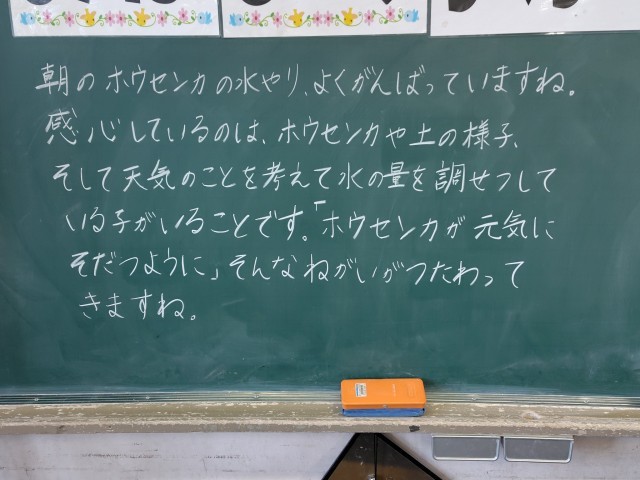 朝のホウセンカの水やり、よくがんばっていますね。
感心しているのは、ホウセンカや土の様子、
そして天気のことを考えて水の量を調せつして
いる子がいることです。「ホウセンカが元気に
そだつように」そんなねがいがつたわって
きますね。